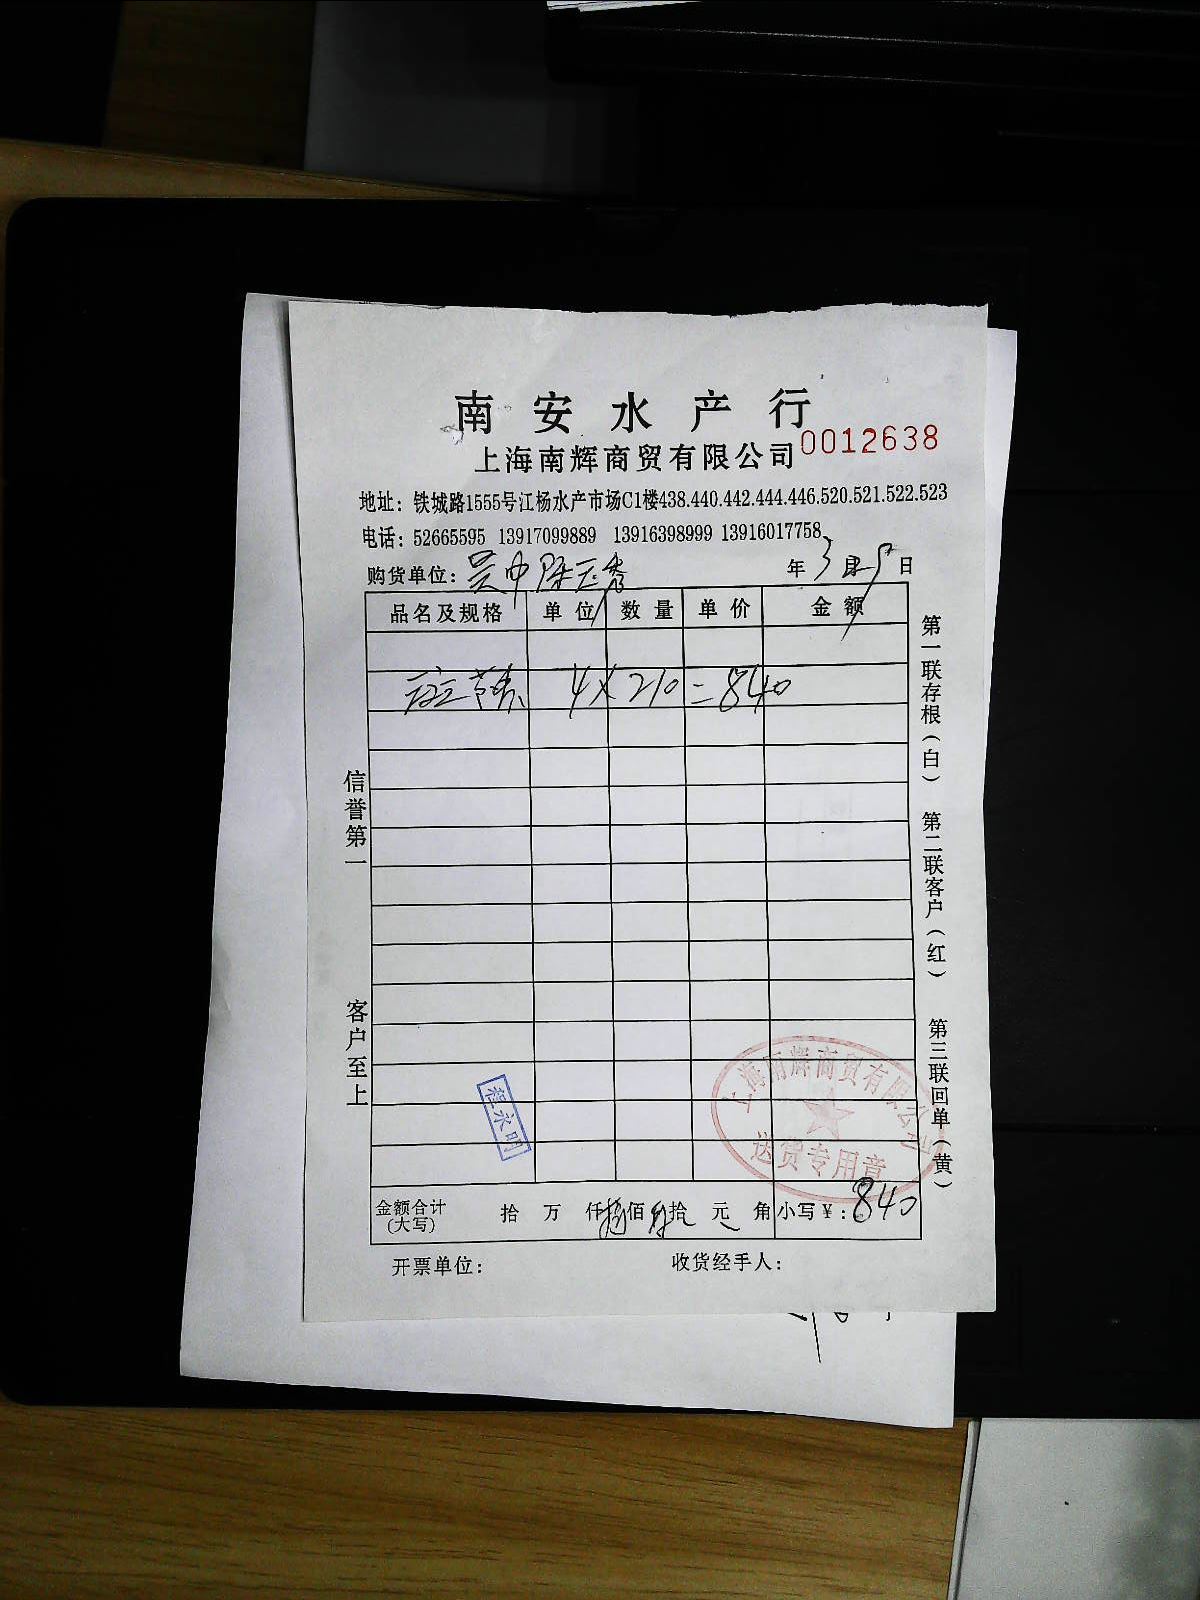 南安水产行
上海南辉商贸有限公司 0012638
地址：铁城路1555号江杨水产市场C1楼438.440.442.444.446.520.521.522.523
电话：52665595 13917099889 13916398999 13916017758
购货单位：吴中陈玉秀 年3月5日
品名及规格 单位 数量 单价 金额
斑节 4×210=840
信誉第一
客户至上
第一联存根（白） 第二联客户（红） 第三联回单（黄）
程永明
上海南辉商贸有限公司
送货专用章
金额合计（大写） 拾 万 仟捌佰肆拾 元 角 小写￥：840
开票单位： 收货经手人：